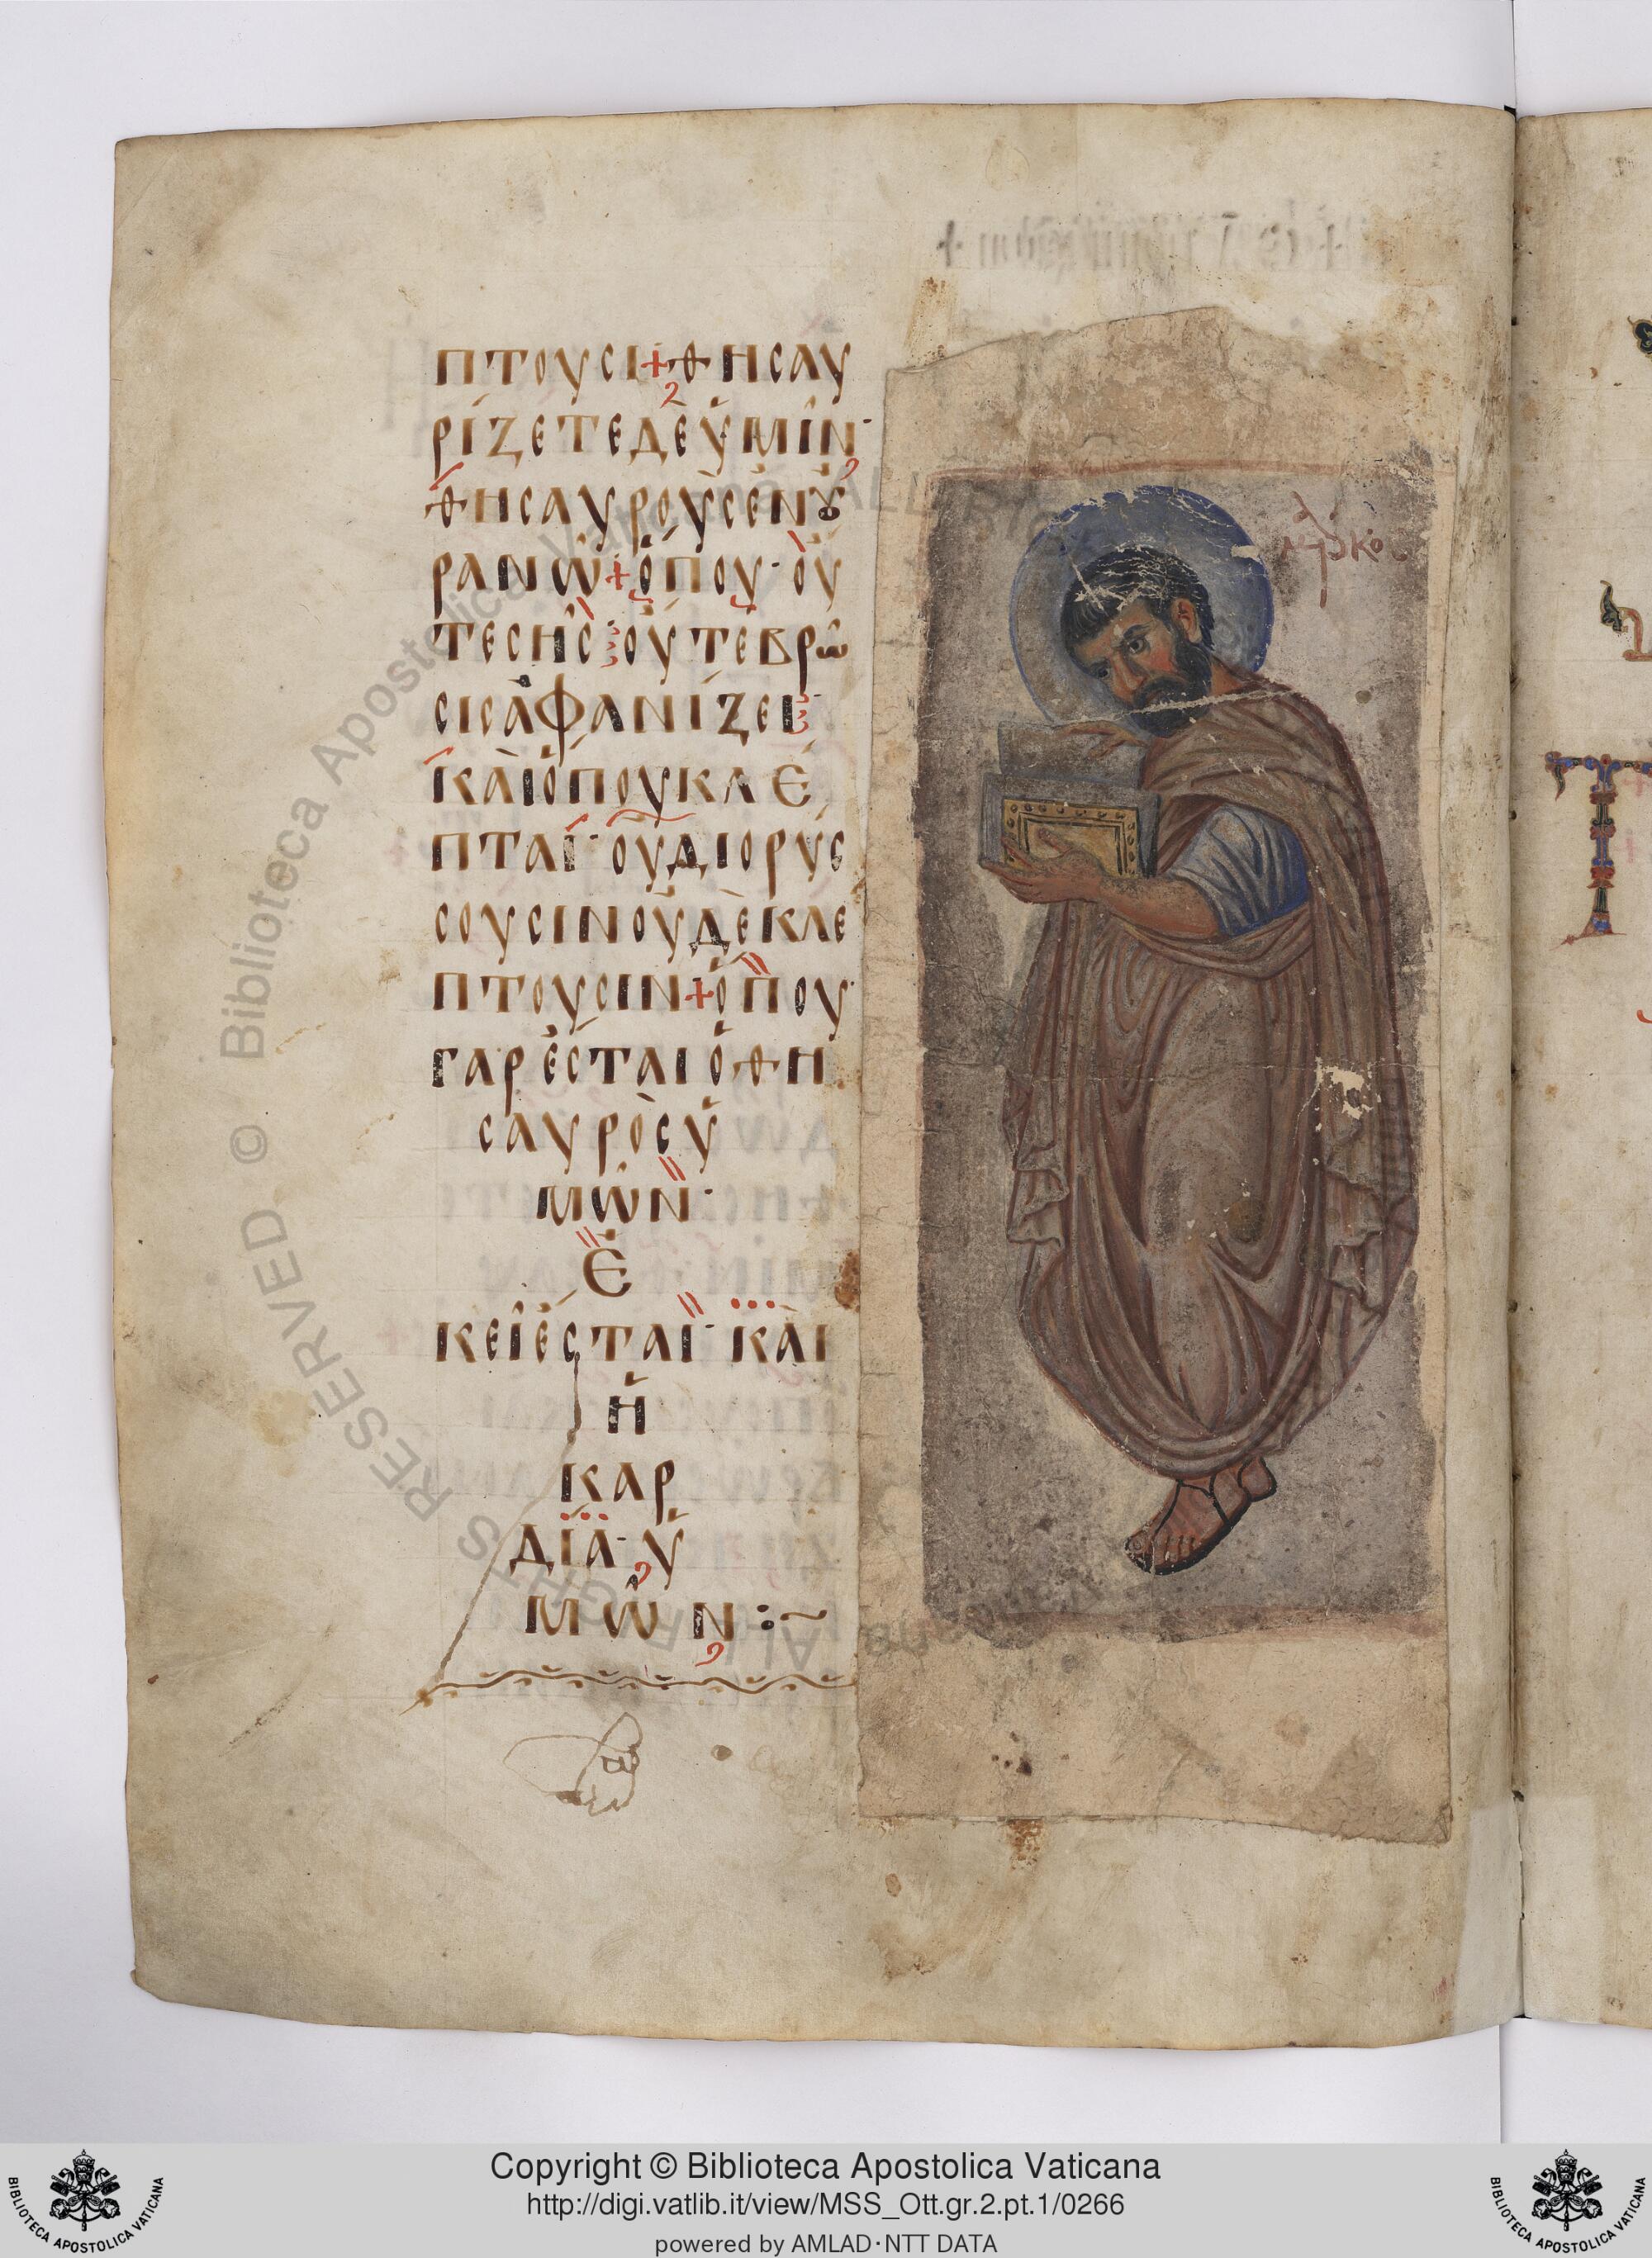 ΠΤΟΥΣΙ + ΘΗΣΑΥ
ΡΊΖΕΤΕΔῈὙΜῖΝ·
ΘΗΣΑΥΡΟῪΣἘΝΟὐ
ΡΑΝῶ + ὍΠΟΥ· Οὔ
ΤΕΣῊΣ· ΟὔΤΕΒΡῶ
ΣΙΣἈΦΑΝΊΖΕΙ·
ΚΑῚὍΠΟΥΚΛΈ
ΠΤΑΙ· ΟὐΔΙΟΡΎΣ
ΣΟΥΣΙΝΟὐΔῈΚΛΈ
ΠΤΟΥΣΙΝ + ὍΠΟΥ·
ΓΑΡἘΣΤΑΙὉΘΗ
ΣΑΥΡῸΣὙ
ΜῶΝ·
Ἐ
ΚΕΙἜΣΤΑΙ· ΚΑῚ
Ἡ
ΚΑΡ
ΔΊΑ· Ὑ
ΜῶΝ :~
ΜάρΚΟς
Copyright © Biblioteca Apostolica Vaticana
http://digi.vatlib.it/view/MSS_Ott.gr.2.pt.1/0266
powered by AMLAD·NTT DATA
BIBLIOTECA APOSTOLICA VATICANA
BIBLIOTECA APOSTOLICA VATICANA
Biblioteca Apostolica Vaticana ALL RIGHTS RESERVED ©